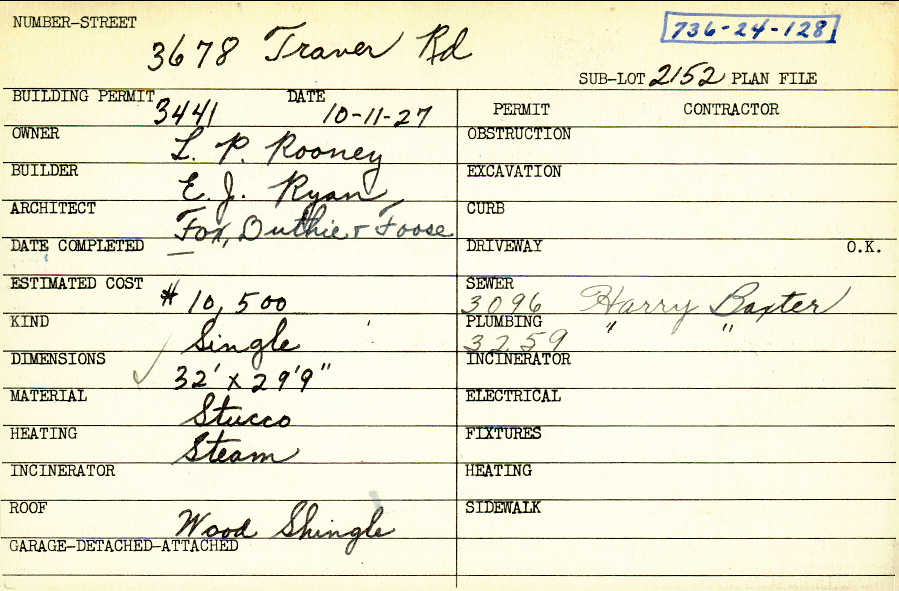 NUMBER-STREET
736-24-128
3678 Traver Rd
SUB-LOT 2152 PLAN FILE
BUILDING PERMIT 3441 DATE 10-11-27
PERMIT CONTRACTOR
OWNER L. P. Rooney
OBSTRUCTION
BUILDER E. J. Ryan
EXCAVATION
ARCHITECT Fox, Duthie & Foose
CURB
DATE COMPLETED —
DRIVEWAY O.K.
ESTIMATED COST $10,500
SEWER 3096 Harry Baxter
KIND Single
PLUMBING 3259 " "
DIMENSIONS ✓ 32' x 29'9"
INCINERATOR
MATERIAL Stucco
ELECTRICAL
HEATING Steam
FIXTURES
INCINERATOR
HEATING
ROOF Wood Shingle
SIDEWALK
GARAGE-DETACHED-ATTACHED